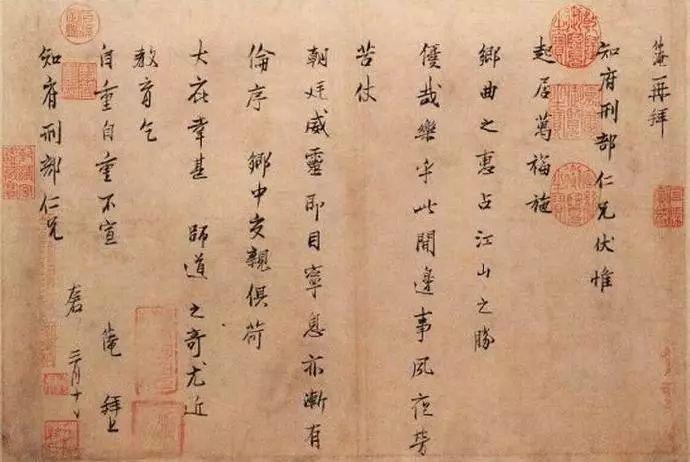 仲淹再拜
知府刑部仁兄伏惟
起居萬福施
鄉曲之惠占江山之勝
優哉樂乎此間邊事夙夜勞
苦仗
朝廷威靈即目寧息亦漸有
倫序 鄉中交親俱荷
大庇幸甚 師道之奇尤近
教育乞
自重自重不宣 仲淹 拜上
知府刑部仁兄
左右 三月十日